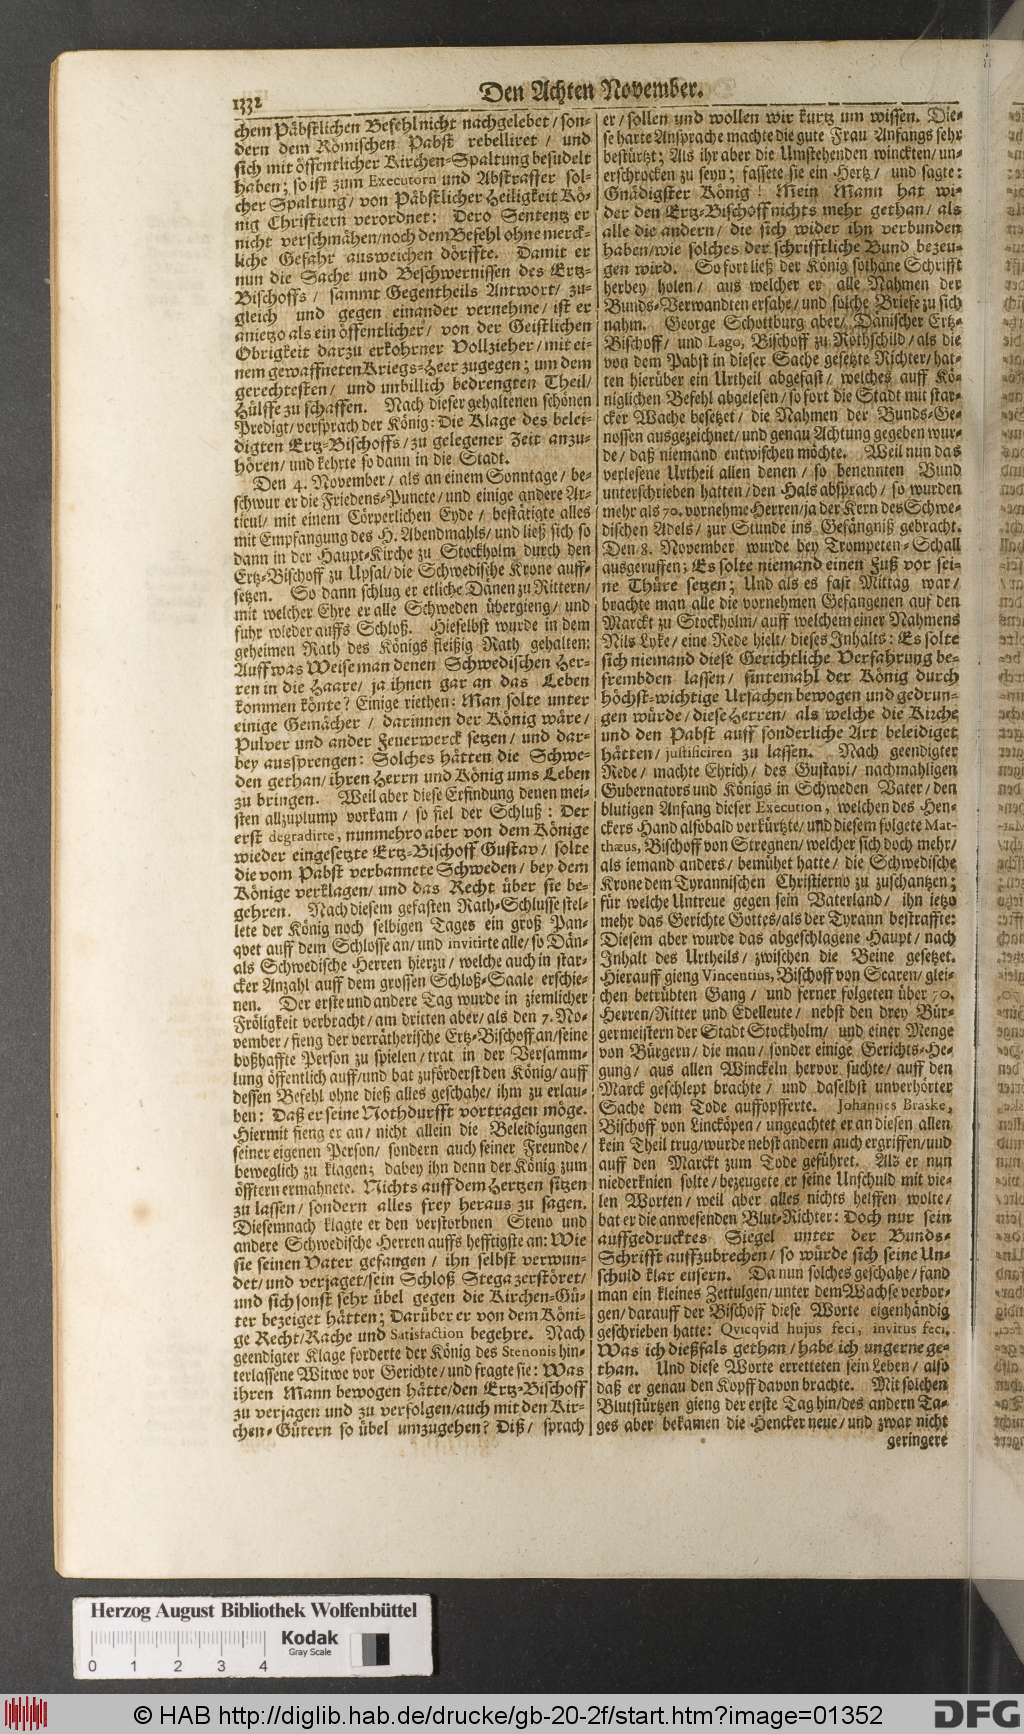 1332
Den Achten November.
chem Päbstlichen Befehl nicht nachgelebet / son-
dern dem Römischen Pabst rebelliret / und
sich mit öffentlicher Kirchen-Spaltung besudelt
haben; so ist zum Executorn und Abstraffer sol-
cher Spaltung / von Päbstlicher Heiligkeit Kö-
nig Christiern verordnet: Dero Sentenz er
nicht verschmähen / noch dem Befehl ohne merck-
liche Gefahr ausweichen dörffte. Damit er
nun die Sache und Beschwernissen des Ertz-
Bischoffs / sammt Gegentheils Antwort / zu-
gleich und gegen einander vernehme / ist er
ametzo als ein öffentlicher / von der Geistlichen
Obrigkeit darzu erkohrner Vollzieher / mit ei-
nem gewaffneten Kriegs-Heer zugegen; um dem
gerechtesten / und unbillich bedrengten Theil /
Hülffe zu schaffen. Nach dieser gehaltenen schönen
Predigt / versprach der König: Die Klage des belei-
digten Ertz-Bischoffs / zu gelegener Zeit anzu-
hören / und kehrte so dann in die Stadt.
Den 4. November / als an einem Sonntage / be-
schwur er die Friedens-Puncte / und einige andere Ar-
ticul / mit einem Cörperlichen Eyde / bestätigte alles
mit Empfangung des H. Abendmahls / und ließ sich so
dann in der Haupt-Kirche zu Stockholm durch den
Ertz-Bischoff zu Upsal / die Schwedische Krone auff-
setzen. So dann schlug er etliche Dänen zu Rittern /
mit welcher Ehre er alle Schweden übergieng / und
fuhr wieder auffs Schloß. Hieselbst wurde in dem
geheimen Rath des Königs fleißig Rath gehalten:
Auff was Weise man denen Schwedischen Her-
ren in die Haare / ja ihnen gar an das Leben
kommen könte? Einige riethen: Man solte unter
einige Gemächer / darinnen der König wäre /
Pulver und ander Feuerwerck setzen / und dar-
bey aussprengen: Solches hätten die Schwe-
den gethan / ihren Herrn und König ums Leben
zu bringen. Weil aber diese Erfindung denen mei-
sten allzuplump vorkam / so fiel der Schluß: Der
erst degradirte, nunmehro aber von dem Könige
wieder eingesetzte Ertz-Bischoff Gustav / solte
die vom Pabst verbannete Schweden / bey dem
Könige verklagen / und das Recht über sie be-
gehren. Nach diesem gefasten Rath-Schlusse stel-
lete der König noch selbigen Tages ein groß Pan-
qvet auff dem Schlosse an / und invitirte alle / so Dän-
als Schwedische Herren hierzu / welche auch in star-
cker Anzahl auff dem grossen Schloß-Saale erschie-
nen. Der erste und andere Tag wurde in ziemlicher
Fröligkeit verbracht / am dritten aber / als den 7. No-
vember / fieng der verrätherische Ertz-Bischoff an / seine
boßhaffte Person zu spielen / trat in der Versamm-
lung öffentlich auff / und bat zuförderst den König / auff
dessen Befehl ohne dieß alles geschahe / ihm zu erlau-
ben: Daß er seine Nothdurfft vortragen möge.
Hiermit fieng er an / nicht allein die Beleidigungen
seiner eigenen Person / sondern auch seiner Freunde /
beweglich zu klagen; dabey ihn denn der König zum
öfftern ermahnete. Nichts auff dem Hertzen sitzen
zu lassen / sondern alles frey heraus zu sagen.
Diesemnach klagte er den verstorbnen Steno und
andere Schwedische Herren auffs hefftigste an: Wie
sie seinen Vater gefangen / ihn selbst verwun-
det / und verjaget / sein Schloß Stega zerstöret /
und sich sonst sehr übel gegen die Kirchen-Gü-
ter bezeiget hätten; Darüber er von dem Köni-
ge Recht / Rache und Satisfaction begehre. Nach
geendigter Klage forderte der König des Stenonis hin-
terlassene Witwe vor Gerichte / und fragte sie: Was
ihren Mann bewogen hätte / den Ertz-Bischoff
zu verjagen und zu verfolgen / auch mit den Kir-
chen-Gütern so übel umzugehen? Diß / sprach
er / sollen und wollen wir kurtz um wissen. Die-
se harte Ansprache machte die gute Frau Anfangs sehr
bestürtzt; Als ihr aber die Umstehenden winckten / un-
erschrocken zu seyn; fassete sie ein Hertz / und sagte:
Gnädigster König! Mein Mann hat wi-
der den Ertz-Bischoff nichts mehr gethan / als
alle die andern / die sich wider ihn verbunden
haben / wie solches der schrifftliche Bund bezeu-
gen wird. So fort ließ der König sothane Schrifft
herbey holen / aus welcher er alle Nahmen der
Bunds-Verwandten ersahe / und solche Briefe zu sich
nahm. George Schottburg aber / Dänischer Ertz-
Bischoff / und Lago, Bischoff zu Rothschild / als die
von dem Pabst in dieser Sache gesetzte Richter / hat-
ten hierüber ein Urtheil abgefast / welches auff Kö-
niglichen Befehl abgelesen / so fort die Stadt mit star-
cker Wache besetzet / die Nahmen der Bunds-Ge-
nossen ausgezeichnet / und genau Achtung gegeben wur-
de / daß niemand entwischen möchte. Weil nun das
verlesene Urtheil allen denen / so benennten Bund
unterschrieben hatten / den Hals absprach / so wurden
mehr als 70. vornehme Herren / ja der Kern des Schwe-
dischen Adels / zur Stunde ins Gefängniß gebracht.
Den 8. November wurde bey Trompeten-Schall
ausgeruffen; Es solte niemand einen Fuß vor sei-
ne Thüre setzen; Und als es fast Mittag war /
brachte man alle die vornehmen Gefangenen auf den
Marckt zu Stockholm / auff welchem einer Nahmens
Nils Lyke / eine Rede hielt / dieses Inhalts: Es solte
sich niemand diese Gerichtliche Verfahrung be-
frembden lassen / sintemahl der König durch
höchst-wichtige Ursachen bewogen und gedrun-
gen würde / diese Herren / als welche die Kirche
und den Pabst auff sonderliche Art beleidiget
hätten / justificiren zu lassen. Nach geendigter
Rede / machte Ehrich / des Gustavi / nachmahligen
Gubernators und Königs in Schweden Vater / den
blutigen Anfang dieser Execution, welchen des Hen-
ckers Hand alsobald verkürtzte / und diesem folgete Mat-
thæus, Bischoff von Stregnen / welcher sich doch mehr /
als iemand anders / bemühet hatte / die Schwedische
Krone dem Tyrannischen Christierno zu zuschantzen;
für welche Untreue gegen sein Vaterland / ihn ietzo
mehr das Gerichte Gottes / als der Tyrann bestraffte:
Diesem aber wurde das abgeschlagene Haupt / nach
Inhalt des Urtheils / zwischen die Beine gesetzet.
Hierauff gieng Vincentius, Bischoff von Scaren / glei-
chen betrübten Gang / und ferner folgeten über 70.
Herren / Ritter und Edelleute / nebst den drey Bür-
germeistern der Stadt Stockholm / und einer Menge
von Bürgern / die man / sonder einige Gerichts-He-
gung / aus allen Winckeln hervor suchte / auff den
Marck geschlept brachte / und daselbst unverhörter
Sache dem Tode auffopfferte. Johannes Braske,
Bischoff von Linckópen / ungeachtet er an diesen allen
kein Theil trug / wurde nebst andern auch ergriffen / und
auff den Marckt zum Tode geführet. Als er nun
niederknien solte / bezeugete er seine Unschuld mit vie-
len Worten / weil aber alles nichts helffen wolte /
bat er die anwesenden Blut-Richter: Doch nur sein
auffgedrucktes Siegel unter der Bunds-
Schrifft auffzubrechen / so würde sich seine Un-
schuld klar eusern. Da nun solches geschahe / fand
man ein kleines Zettulgen / unter dem Wachse verbor-
gen / darauff der Bischoff diese Worte eigenhändig
geschrieben hatte: Qvicqvid hujus feci, invitus feci.
Was ich dießfals gethan / habe ich ungerne ge-
than. Und diese Worte erretteten sein Leben / also
daß er genau den Kopff davon brachte. Mit solchen
Blutstürtzen gieng der erste Tag hin / des andern Ta-
ges aber bekamen die Hencker neue / und zwar nicht
geringere
Herzog August Bibliothek Wolfenbüttel
Kodak
Gray Scale
0 1 2 3 4
© HAB http://diglib.hab.de/drucke/gb-20-2f/start.htm?image=01352
DFG